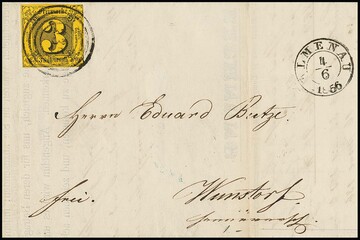 3
ILMENAU
4/6
1856
Herrn Eduard Butze.
frei.
Wunstorf.